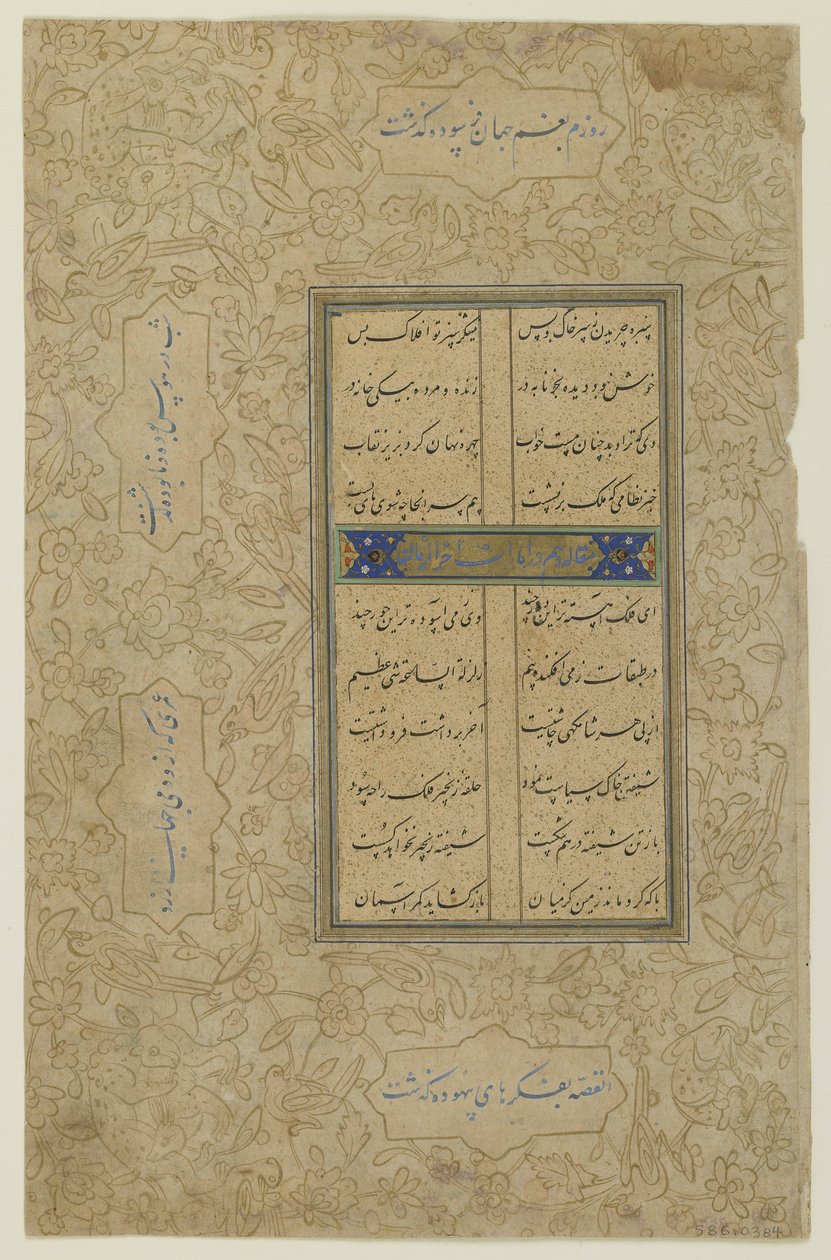 روزم بغم جهان فرسوده گذشت
شب در هوس بوده و نابوده گذشت
عمری که ازو دمی جهانی ارزد
القصه بفکرهای بیهوده گذشت
سبزه چریدن ز سر خاک و بس نیشکر سبز تو افلاک بس
خوش نبود دیده بخونابه در زنده و مرده بیکی خانه در
دی که ترا دید چنان مست خواب چهره نهان کرد بزیر نقاب
خیز نظامی که ملک برنشست هم بسر اینجا چه شوی پای بست
مقاله دهم در امارات آخر الزمان
ای فلک آهسته تر این دور چند وی زمی آسوده تر این جور چند
در طبقات زمی افکنده بیم زلزلة الساعة شی عظیم
از پی هر شامگهی چاشتیست آخر برداشت فرو داشتیست
شیفتهٔ خاک سیاست نمود حلقه زنجیر فلک را بسود
باز تن شیفته در هم شکست شیفته زنجیر نخواهد گسست
با که گرو ماند زمین کز میان باز گشاید کمر آسمان
S86.0384